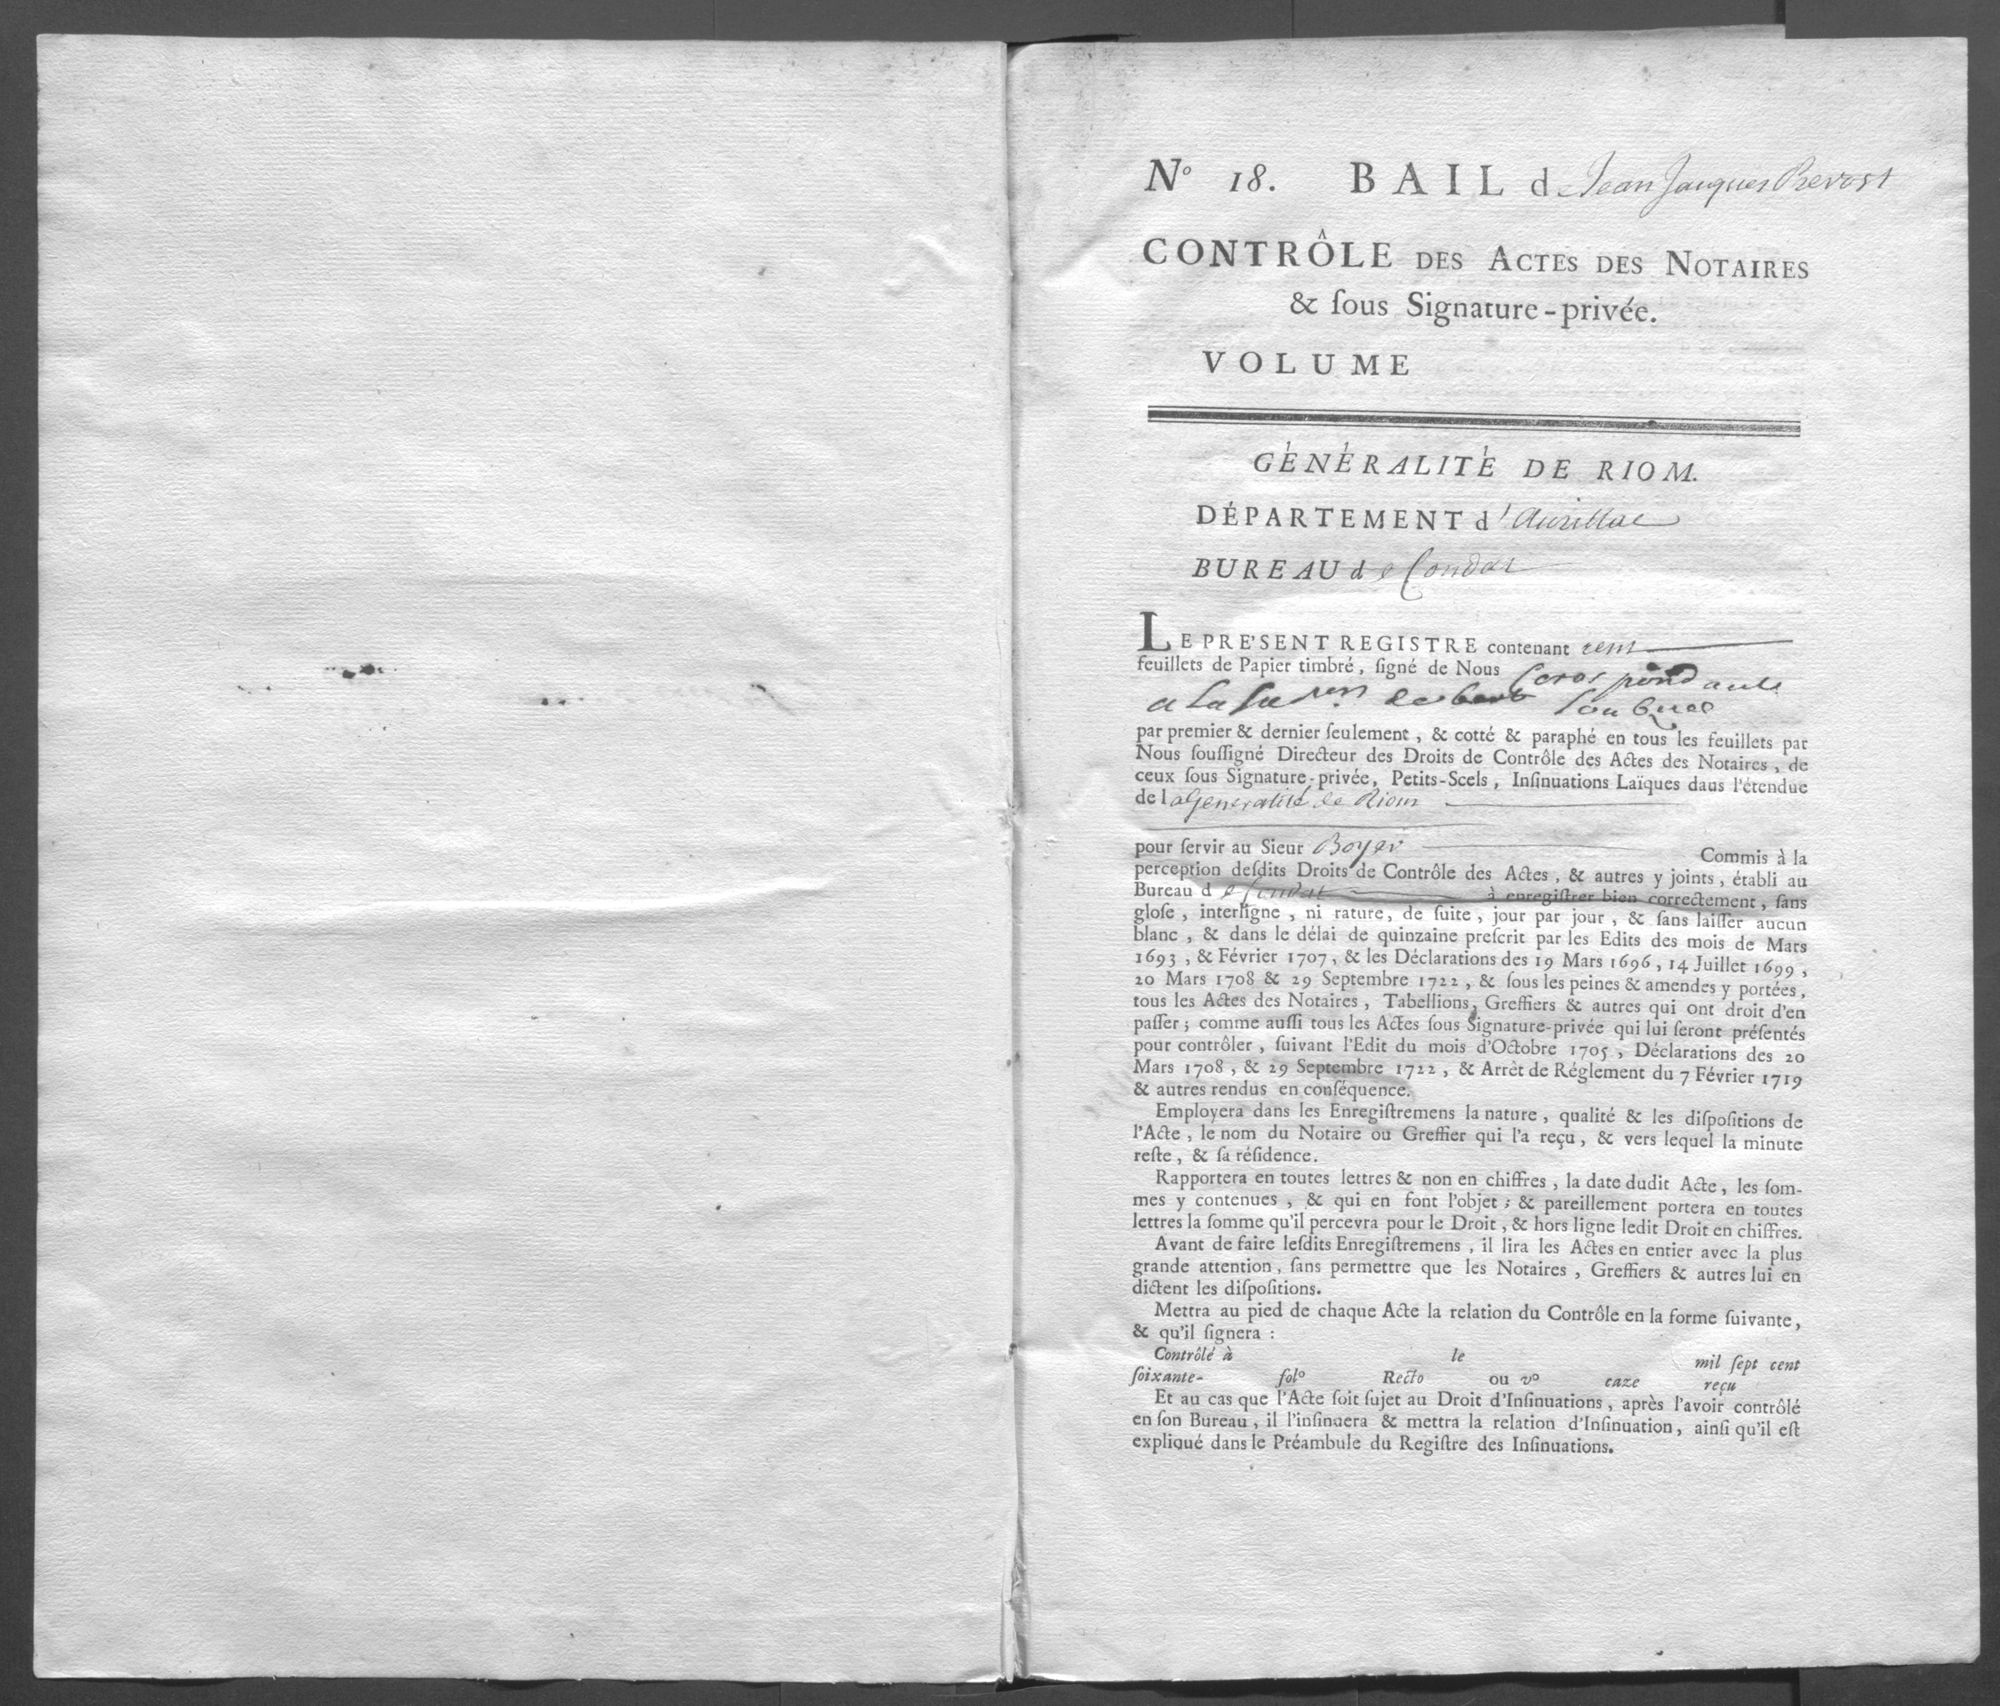 Nº 18. BAIL de Jean Jacques Prevost
CONTRÔLE DES ACTES DES NOTAIRES
& ſous Signature-privée.
VOLUME
GÉNÉRALITÉ DE RIOM.
DÉPARTEMENT d'Aurillac
BUREAU de Condat
LE PRE'SENT REGISTRE contenant cent
feuillets de Papier timbré, ſigné de Nous
par premier & dernier ſeulement, & cotté & paraphé en tous les feuillets par
Nous ſouſſigné Directeur des Droits de Contrôle des Actes des Notaires, de
ceux ſous Signature-privée, Petits-Scels, Inſinuations Laïques daus l'étendue
de la Generalité de Riom
pour ſervir au Sieur Boyer Commis à la
perception deſdits Droits de Contrôle des Actes, & autres y joints, établi au
Bureau de Condat à enregiſtrer bien correctement, ſans
gloſe, interligne, ni rature, de ſuite, jour par jour, & ſans laiſſer aucun
blanc, & dans le délai de quinzaine preſcrit par les Edits des mois de Mars
1693, & Février 1707, & les Déclarations des 19 Mars 1696, 14 Juillet 1699,
20 Mars 1708 & 29 Septembre 1722, & ſous les peines & amendes y portées,
tous les Actes des Notaires, Tabellions, Greffiers & autres qui ont droit d'en
paſſer; comme auſſi tous les Actes ſous Signature-privée qui lui ſeront préſentés
pour contrôler, ſuivant l'Edit du mois d'Octobre 1705, Déclarations des 20
Mars 1708, & 29 Septembre 1722, & Arrèt de Réglement du 7 Février 1719
& autres rendus en conſéquence.
Employera dans les Enregiſtremens la nature, qualité & les diſpoſitions de
l'Acte, le nom du Notaire ou Greffier qui l'a reçu, & vers lequel la minute
reſte, & ſa réſidence.
Rapportera en toutes lettres & non en chiffres, la date dudit Acte, les ſom-
mes y contenues, & qui en font l'objet; & pareillement portera en toutes
lettres la ſomme qu'il percevra pour le Droit, & hors ligne ledit Droit en chiffres.
Avant de faire leſdits Enregiſtremens, il lira les Actes en entier avec la plus
grande attention, ſans permettre que les Notaires, Greffiers & autres lui en
dictent les diſpoſitions.
Mettra au pied de chaque Acte la relation du Contrôle en la forme ſuivante,
& qu'il ſignera :
Contrôlé à le mil ſept cent
ſoixante- folº Recto ou vº caze reçu
Et au cas que l'Acte ſoit ſujet au Droit d'Inſinuations, après l'avoir contrôlé
en ſon Bureau, il l'inſinuera & mettra la relation d'Inſinuation, ainſi qu'il eſt
expliqué dans le Préambule du Regiſtre des Inſinuations.